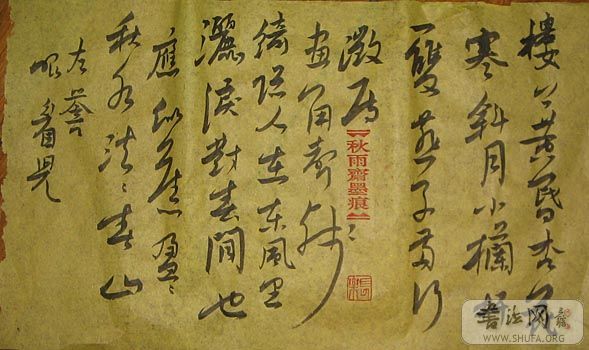 樓上黃昏杏花
寒斜月小欄
一雙燕子兩行
徵雁
畫角聲殘
綺窗人在東風里
灑淚對春閒也
應似舊盈〻
秋水淡〻春山
左譽
眼兒
秋雨齋墨痕
書法网
WWW.SHUFA.ORG